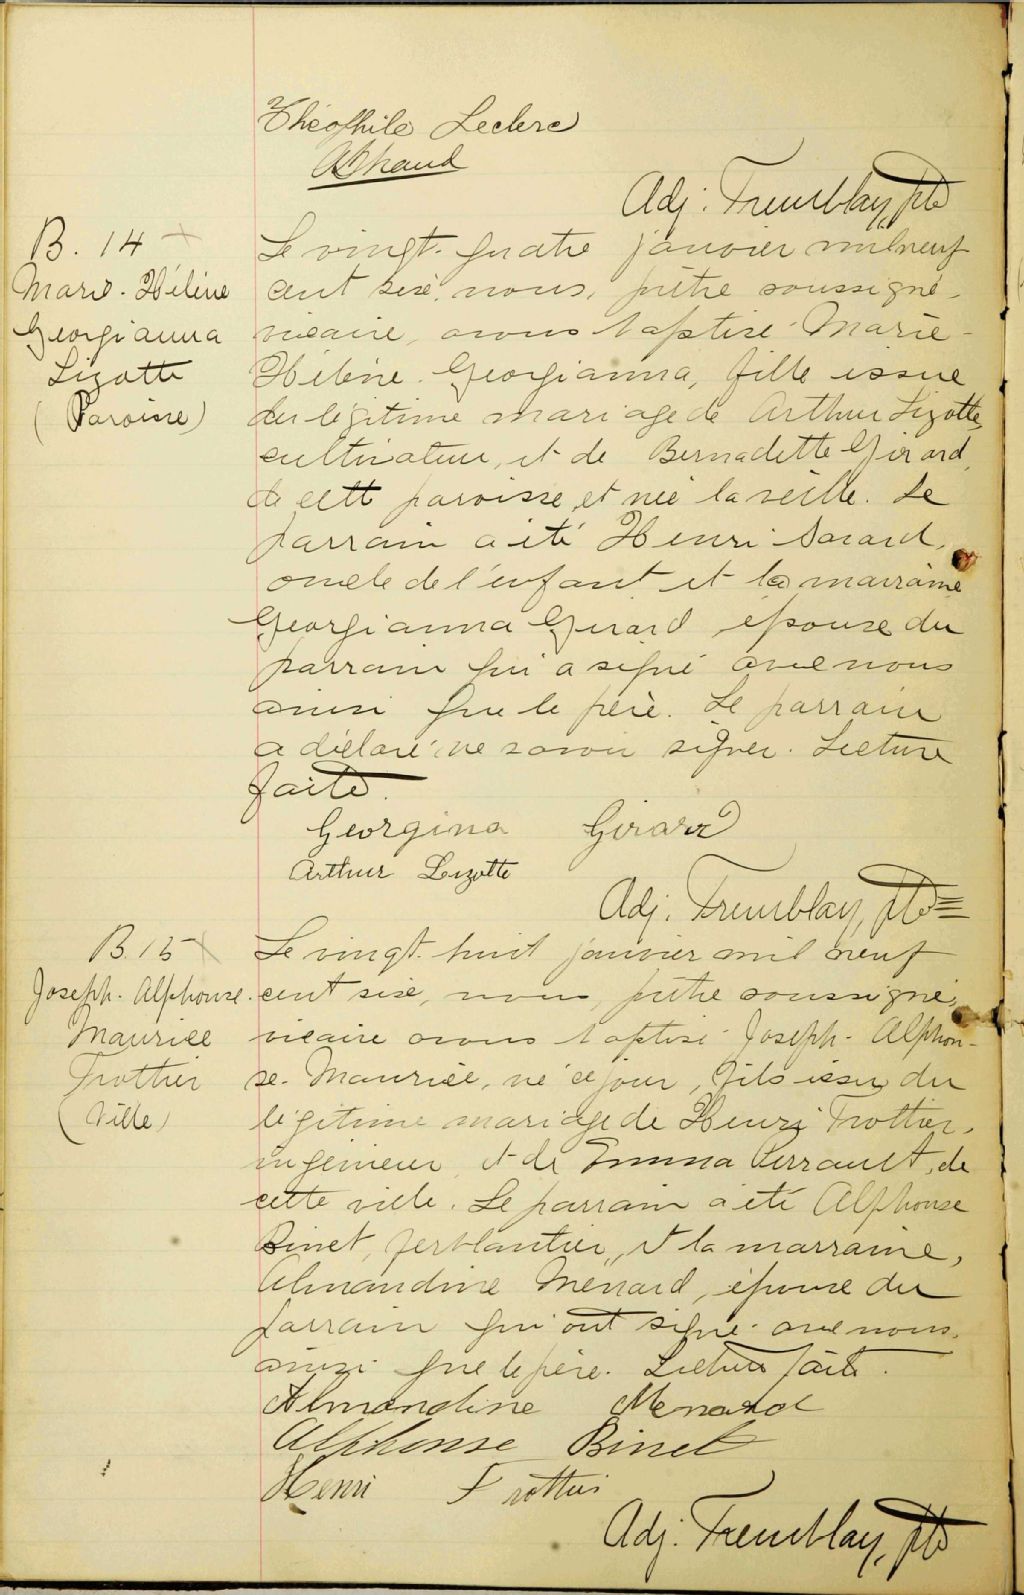 Théophile Leclerc
Adj. Tremblay, ptre
B. 14
Marie-Hélène
Georgianna
Lizotte
(Paroisse)
Le vingt-quatre janvier mil neuf
cent seize, nous, prêtre soussigné,
vicaire, avons baptisé Marie-
Hélène-Georgianna, fille issue
du légitime mariage de Arthur Lizotte,
cultivateur, et de Bernadette Girard,
de cette paroisse, et née la veille. Le
parrain a été Henri
oncle de l'enfant et la marraine
Georgianna Girard épouse du
parrain qui a signé avec nous
ainsi que le père. Le parrain
a déclaré ne savoir signer. Lecture
faite.
Georgina Girard
Arthur Lizotte
Adj. Tremblay, ptre
B. 15
Joseph-Alphonse-
Maurice
Trottier
(Ville)
Le vingt-huit janvier mil neuf
cent seize, nous, prêtre soussigné,
vicaire avons baptisé Joseph-Alphon-
se-Maurice, né ce jour, fils issu du
légitime mariage de Henri Trottier,
ingénieur, et de Emma Perrault, de
cette ville. Le parrain a été Alphonse
Binet, ferblantier, et la marraine,
Almandine Ménard, épouse du
parrain qui ont signé avec nous,
ainsi que le père. Lecture faite.
Almandine Menard
Alphonse Binet
Henri Trottier
Adj. Tremblay, ptre